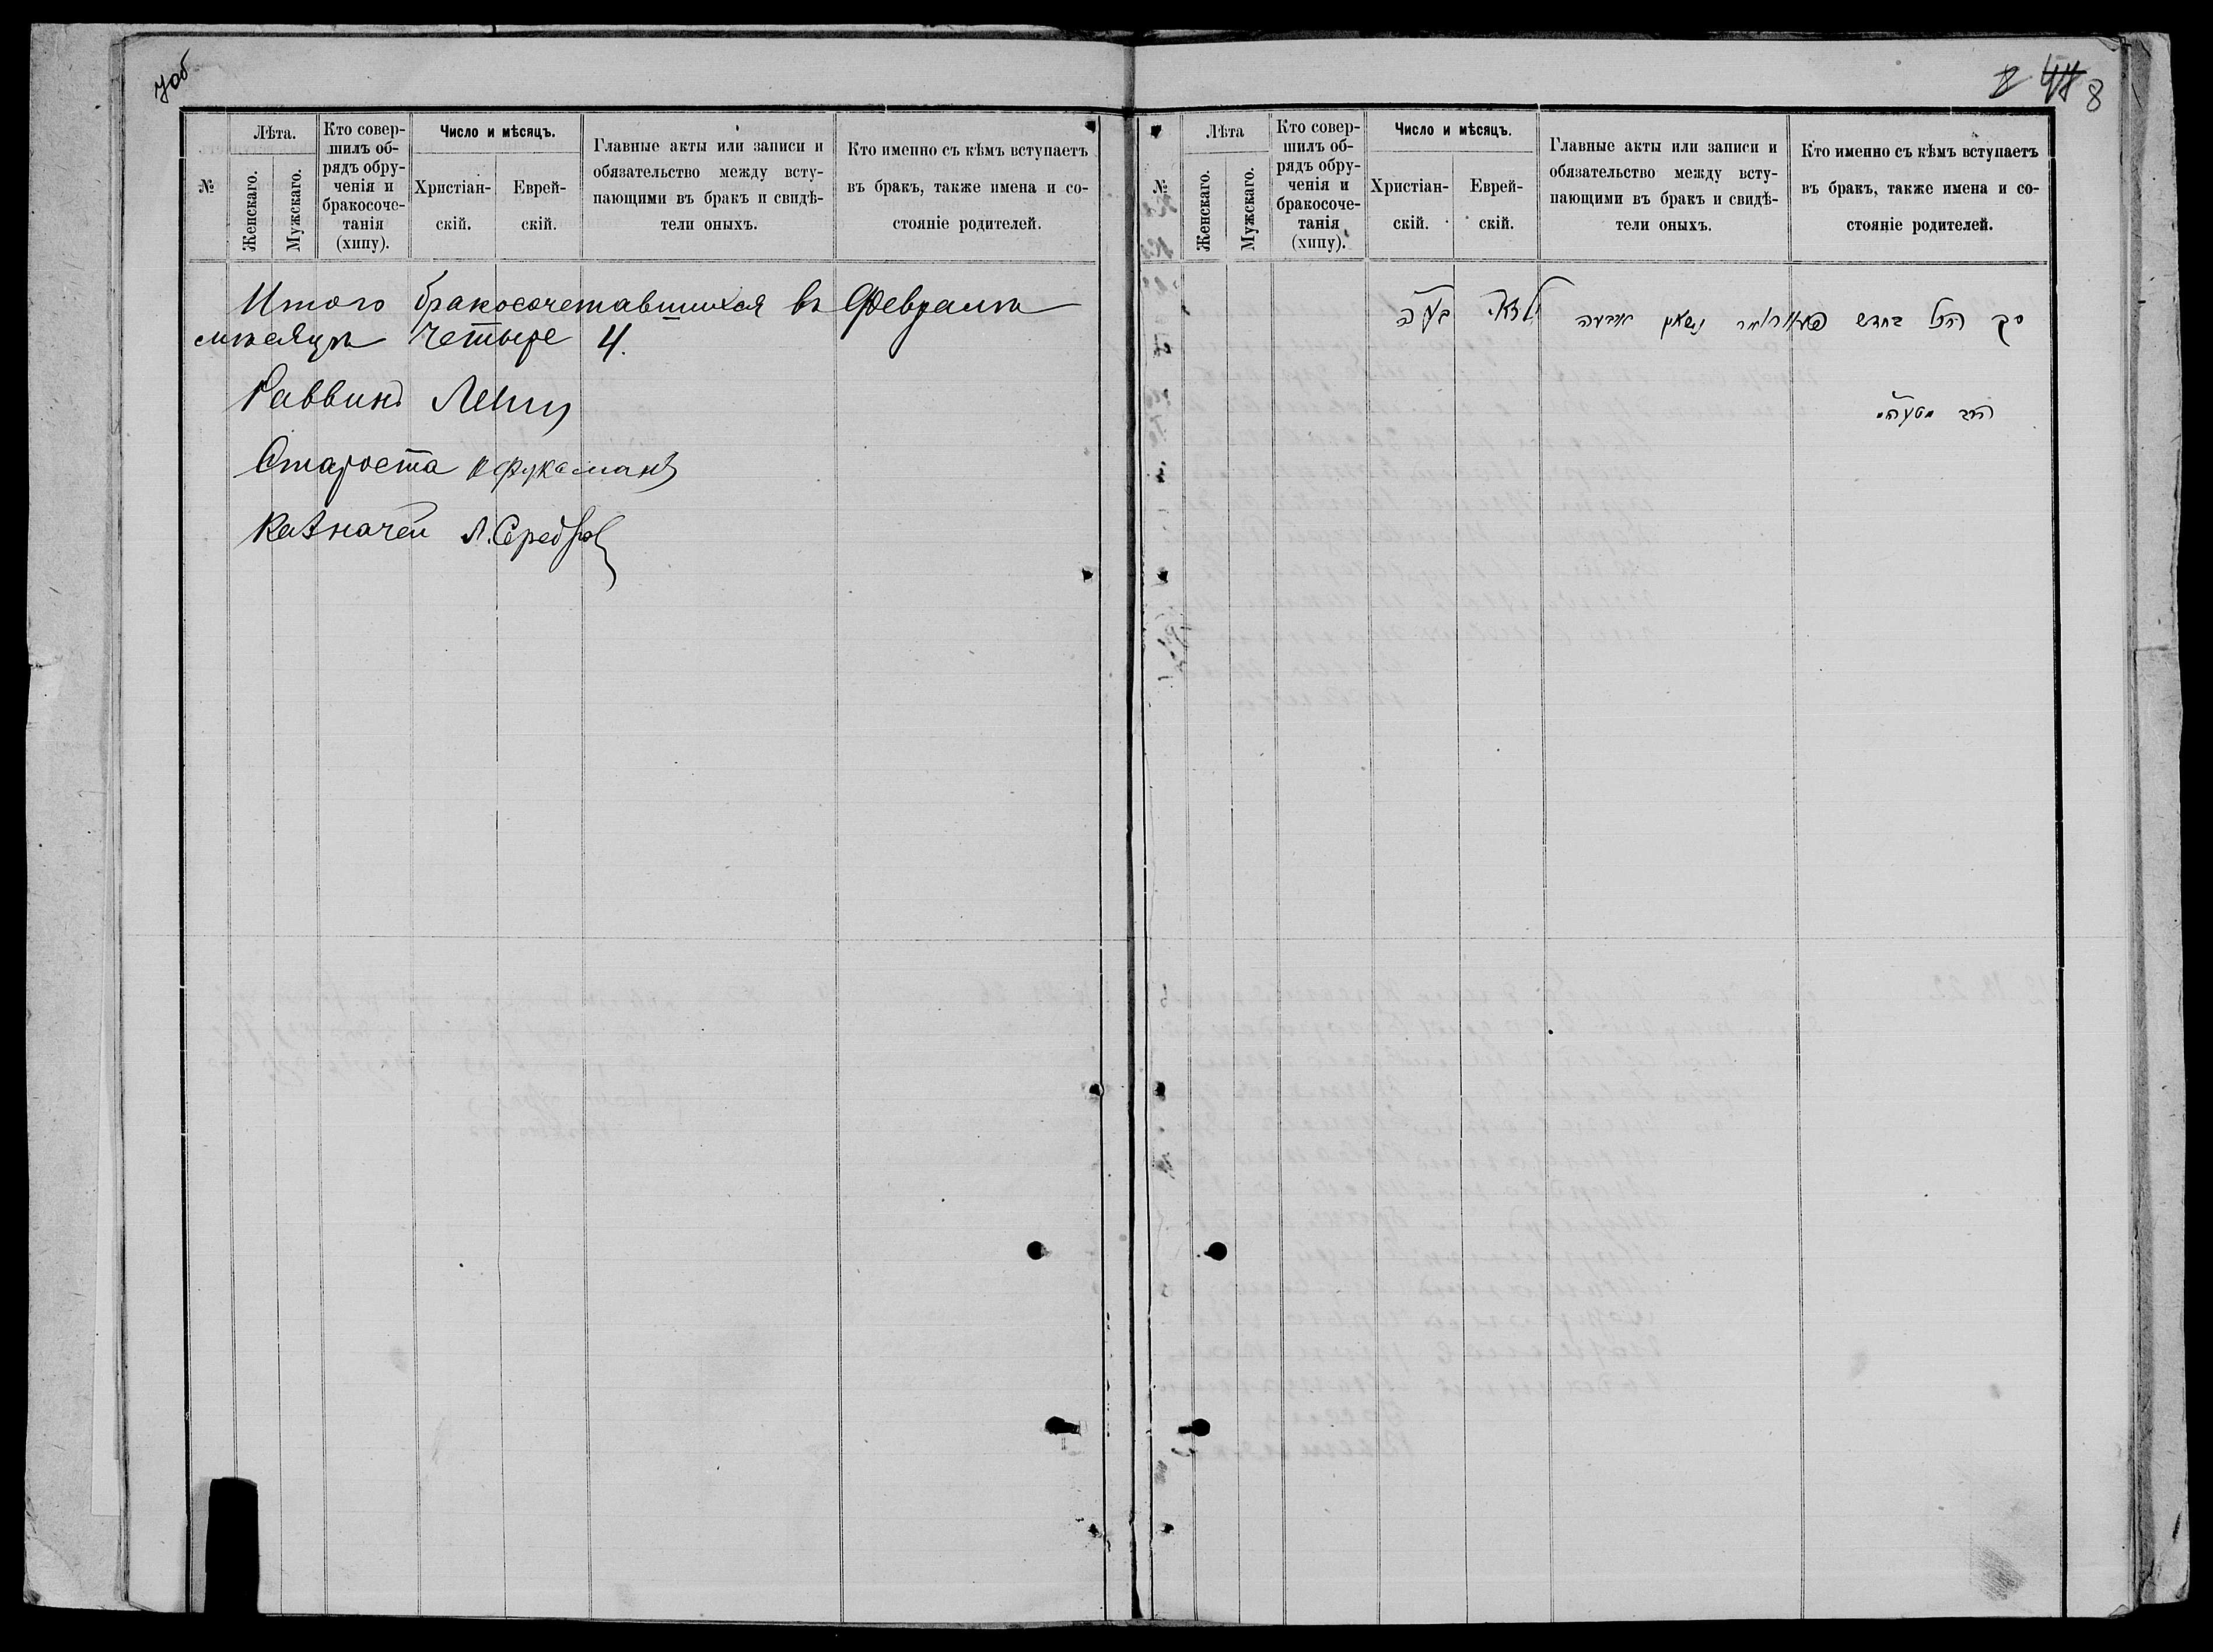 7об
№
Лѣта.
Женскаго.
Мужскаго.
Кто совер-
шилъ об-
рядъ обру-
ченія и
бракосоче-
танія
(хипу).
Число и мѣсяцъ.
Христіан-
скій.
Еврей-
скій.
Главные акты или записи и
обязательство между всту-
пающими въ бракъ и свидѣ-
тели оныхъ.
Кто именно съ кѣмъ вступаетъ
въ бракъ, также имена и со-
стояніе родителей.
Итого бракосочетавшихся въ Февралѣ
мѣсяцѣ четыре 4.
Раввинъ
Староста
Казначей Л.
8
№
Лѣта
Женскаго.
Мужскаго.
Кто совер-
шилъ об-
рядъ обру-
ченія и
бракосоче-
танія
(хипу).
Число и мѣсяцъ.
Христіан-
скій.
Еврей-
скій.
Главные акты или записи и
обязательство между всту-
пающими въ бракъ и свидѣ-
тели оныхъ.
Кто именно съ кѣмъ вступаетъ
въ бракъ, также имена и со-
стояніе родителей.
סך הכל בחדש ארבעה
הרב